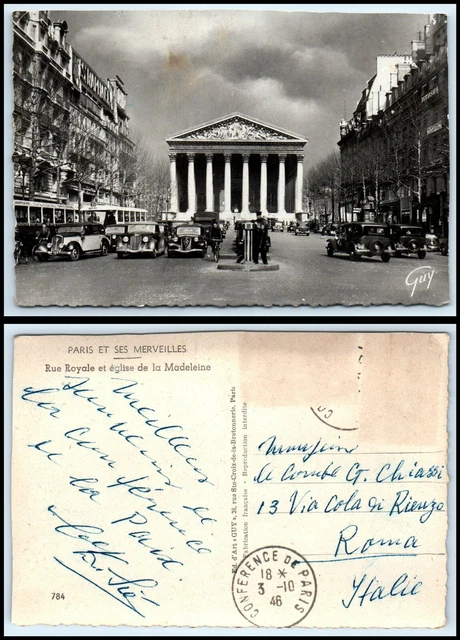 Guy
PARIS ET SES MERVEILLES
Rue Royale et église de la Madeleine
Meilleurs
souvenirs de
la conférence
de la Paix.
Ed. d'Art « GUY », 31, rue Ste-Croix-de-la-Bretonnerie, Paris
Fabrication française - Reproduction interdite
784
CONFERENCE DE PARIS
18 *
3 - 10
46
Monsieur
le Comte G. Chiassi
13 Via Cola di Rienzo
Roma
Italie